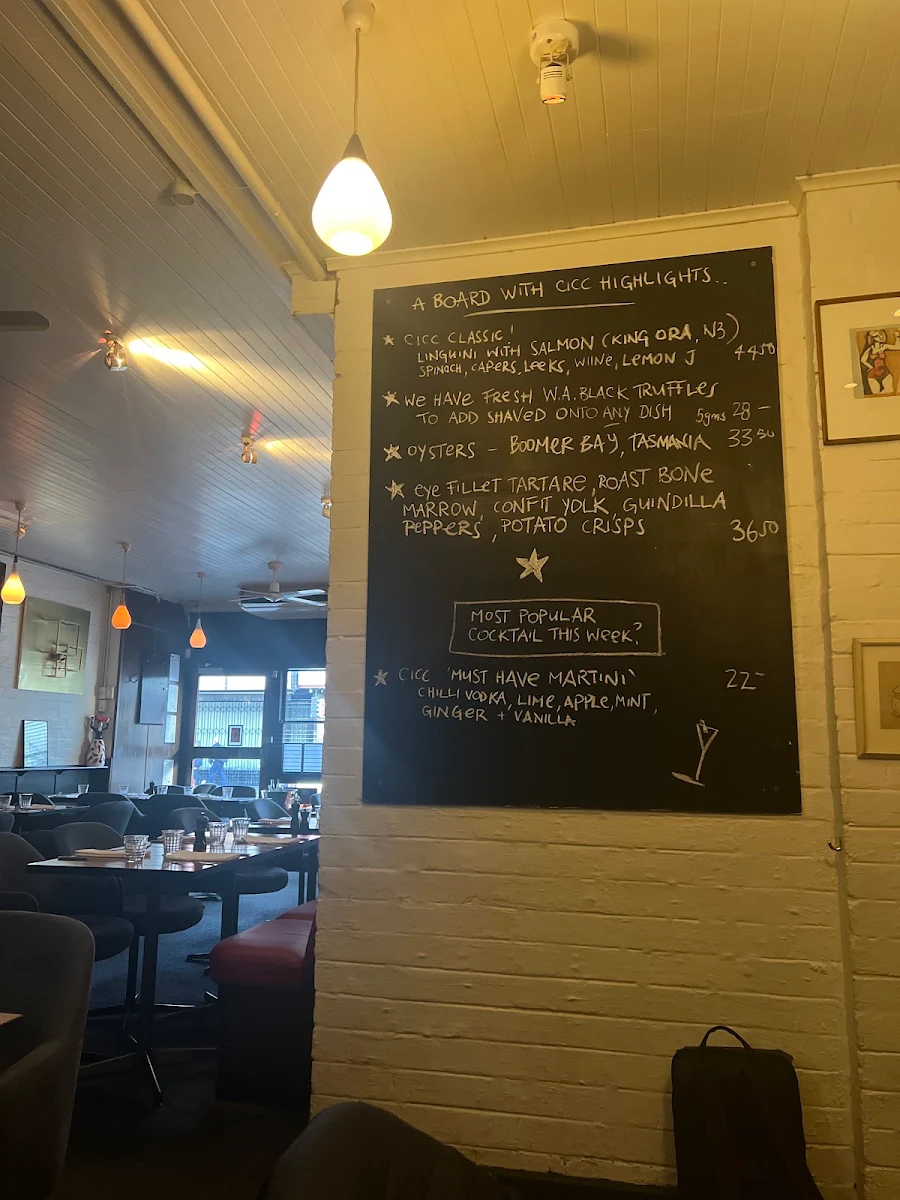 A BOARD WITH CICC HIGHLIGHTS..
CICC CLASSIC!
LINGUINI WITH SALMON (KING ORA, NZ)
SPINACH, CAPERS, LEEKS, WIINE, LEMON J 44 50
WE HAVE FRESH W.A. BLACK TRUFFLES
TO ADD SHAVED ONTO ANY DISH 5gms 28 -
OYSTERS - BOOMER BAY, TASMANIA 33 50
eye FILLET TARTARE, ROAST BONE
MARROW, CONFIT YOLK, GUINDILLA
PEPPERS, POTATO CRISPS 36 50
MOST POPULAR
COCKTAIL THIS WEEK?
CICC 'MUST HAVE MARTINI' 22 -
CHILLI VODKA, LIME, APPLE, MINT,
GINGER + VANILLA